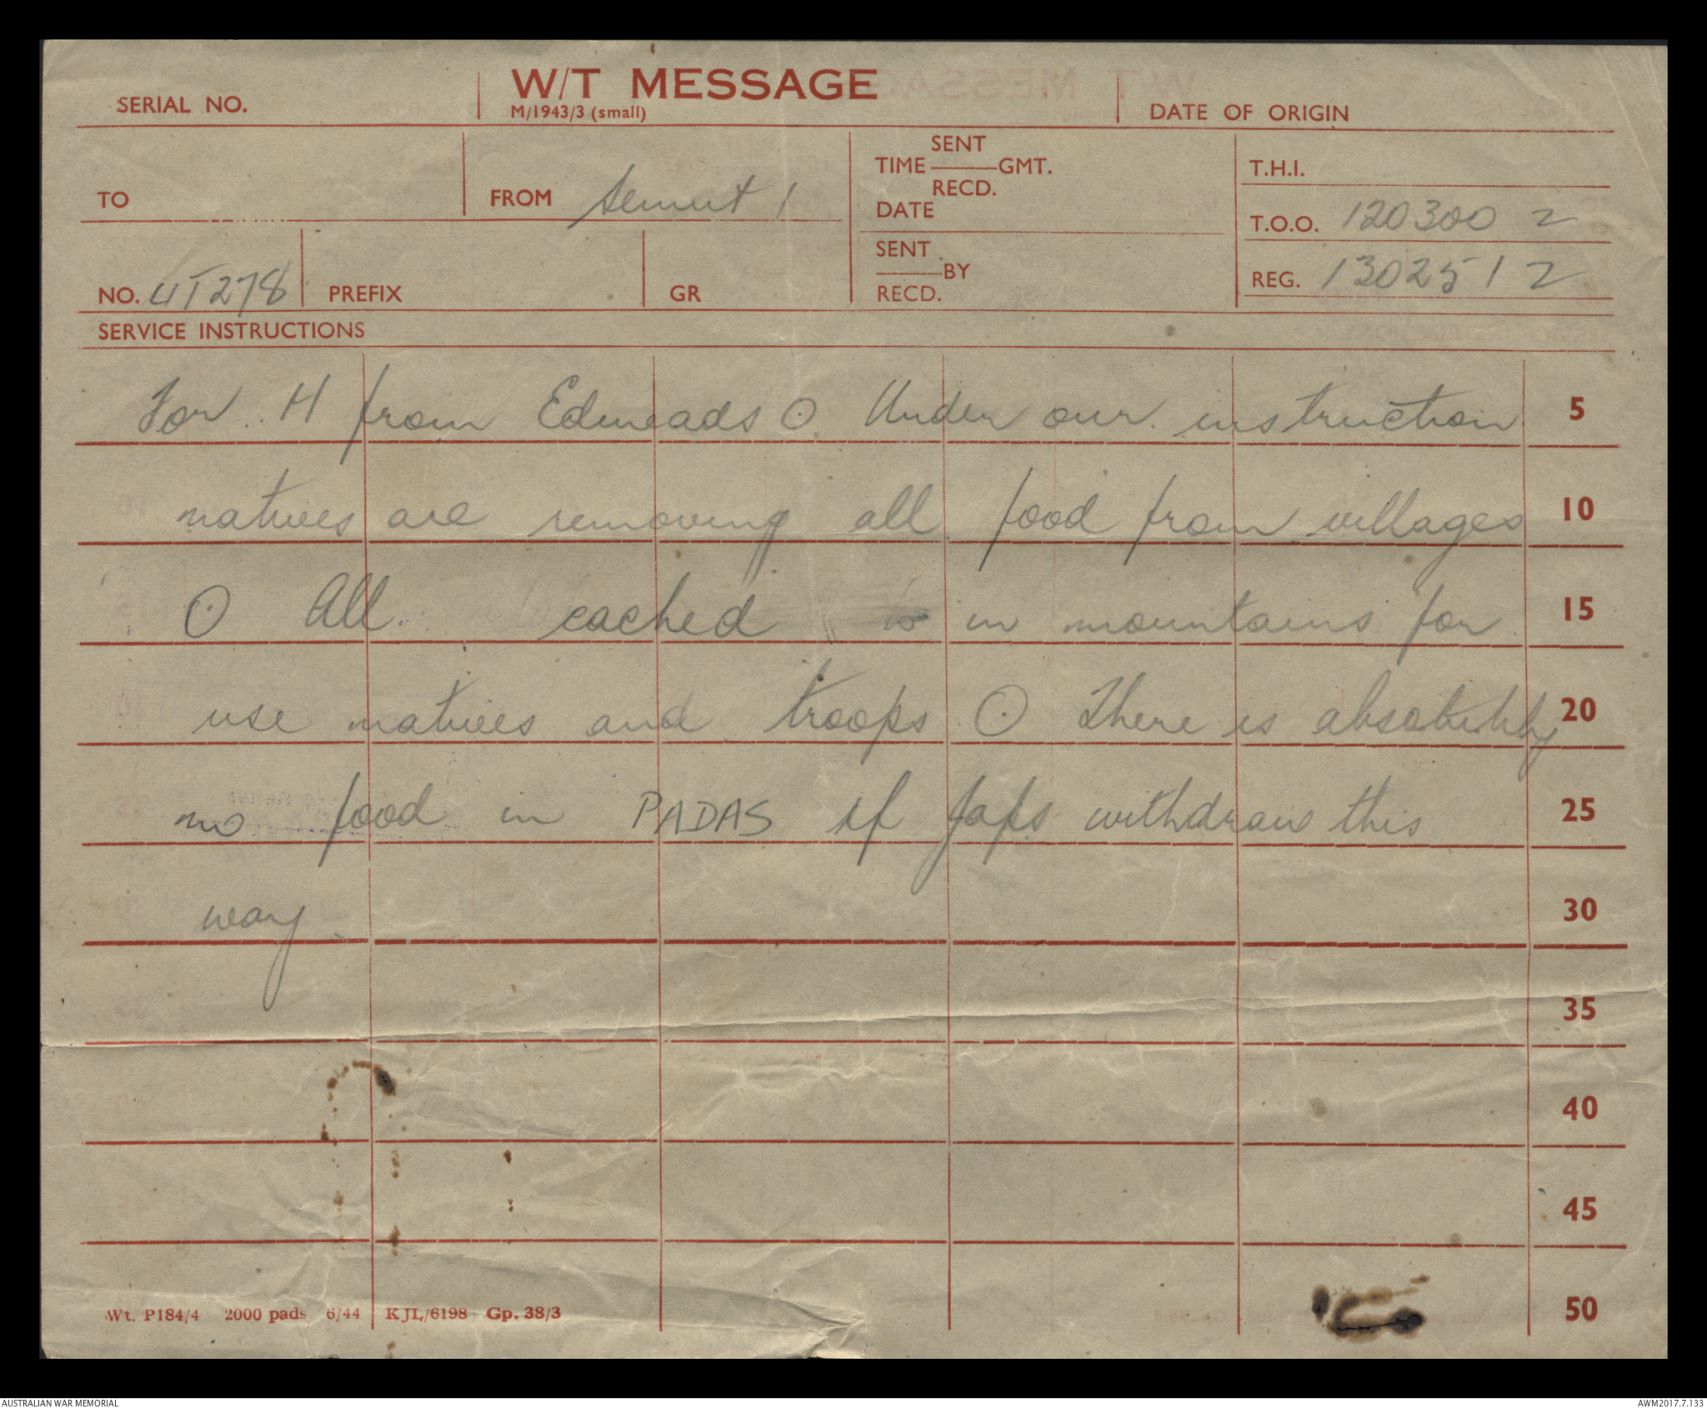 SERIAL NO.
W/T MESSAGE
M/1943/3 (small)
DATE OF ORIGIN
TO
FROM Semut 1
SENT
TIME ———GMT.
RECD.
DATE
T.H.I.
T.O.O. 120300 Z
NO. UT278
PREFIX
GR
SENT
———BY
RECD.
REG. 130251 Z
SERVICE INSTRUCTIONS
For H from Edmeads ⊙ Under our instruction 5
natives are removing all food from villages 10
⊙ All cached in mountains for 15
use natives and troops ⊙ There is absolutely 20
no food in PADAS if Japs withdraw this 25
way 30
35
40
45
50
Wt. P184/4 2000 pads 6/44 KJL/6198 Gp. 38/3
AUSTRALIAN WAR MEMORIAL
AWM2017.7.133